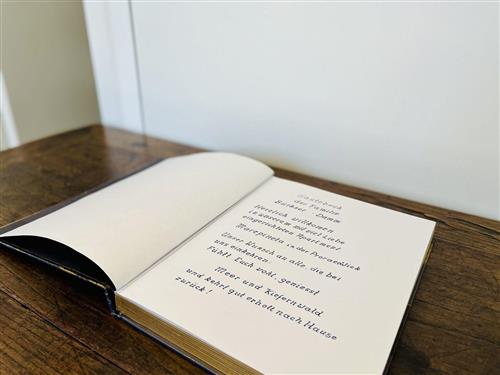 Gästebuch
der Familie
Büchner - Damm
Herzlich willkommen
in unserem mit viel Liebe
eingerichteten Apartment
Marepineta in der Proraer Wiek
Unser Wunsch an alle die bei
uns einkehren:
Fühlt Euch wohl, geniesst
Meer und Kiefernwald
und kehrt gut erholt nach Hause
zurück!